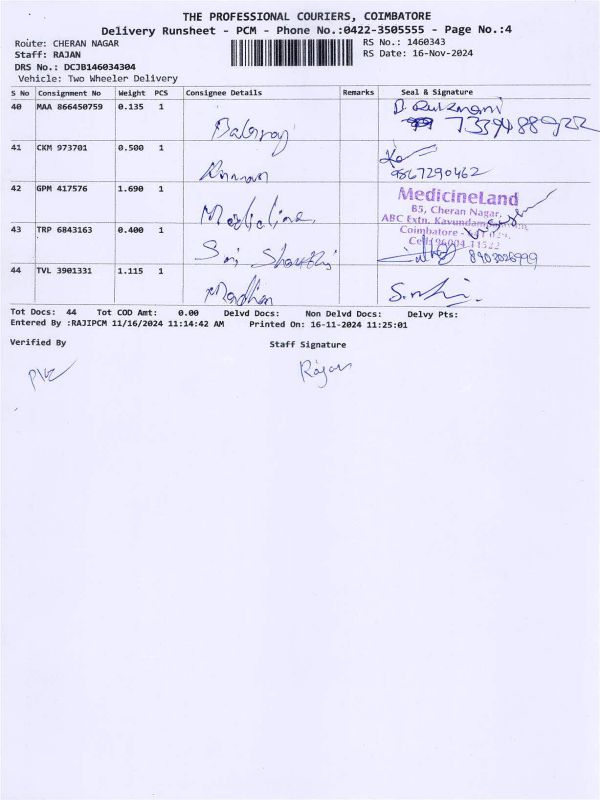 THE PROFESSIONAL COURIERS, COIMBATORE
Delivery Runsheet - PCM - Phone No.:0422-3505555 - Page No.:4
Route: CHERAN NAGAR RS No.: 1460343
Staff: RAJAN RS Date: 16-Nov-2024
DRS No.: DCJB146034304
Vehicle: Two Wheeler Delivery
S No Consignment No Weight PCS Consignee Details Remarks Seal & Signature
40 MAA 866450759 0.135 1
41 CKM 973701 0.500 1
9867290462
42 GPM 417576 1.690 1
MedicineLand
85, Cheran Nagar,
ABC Extn. Kavundam
Coimbatore -
Cell: 96004 11522
43 TRP 6843163 0.400 1 8903028999
44 TVL 3901331 1.115 1
Tot Docs: 44 Tot COD Amt: 0.00 Delvd Docs: Non Delvd Docs: Delvy Pts:
Entered By :RAJIPCM 11/16/2024 11:14:42 AM Printed On: 16-11-2024 11:25:01
Verified By Staff Signature
Rajan